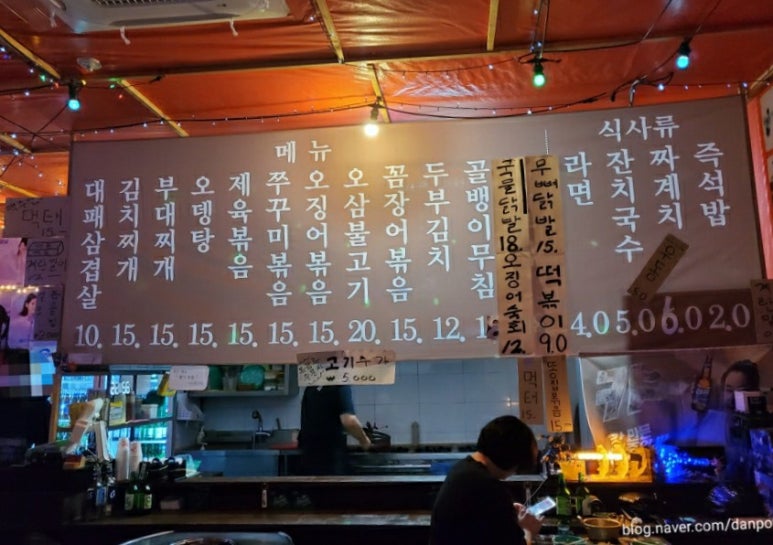 메뉴
대패삼겹살 10.
김치찌개 15.
부대찌개 15.
오뎅탕 15.
제육볶음 15.
쭈꾸미볶음 15.
오징어볶음 15.
오삼불고기 20.
꼼장어볶음 15.
두부김치 12.
골뱅이무침
국물닭발 18.
오징어숙회 12.
무뼈닭발 15.
떡볶이 9.0
식사류
라면 4.0
잔치국수 5.0
짜계치 6.0
즉석밥 2.0
먹태 15.
고기추가
₩ 5,000
먹태 15.
15
blog.naver.com/danpo